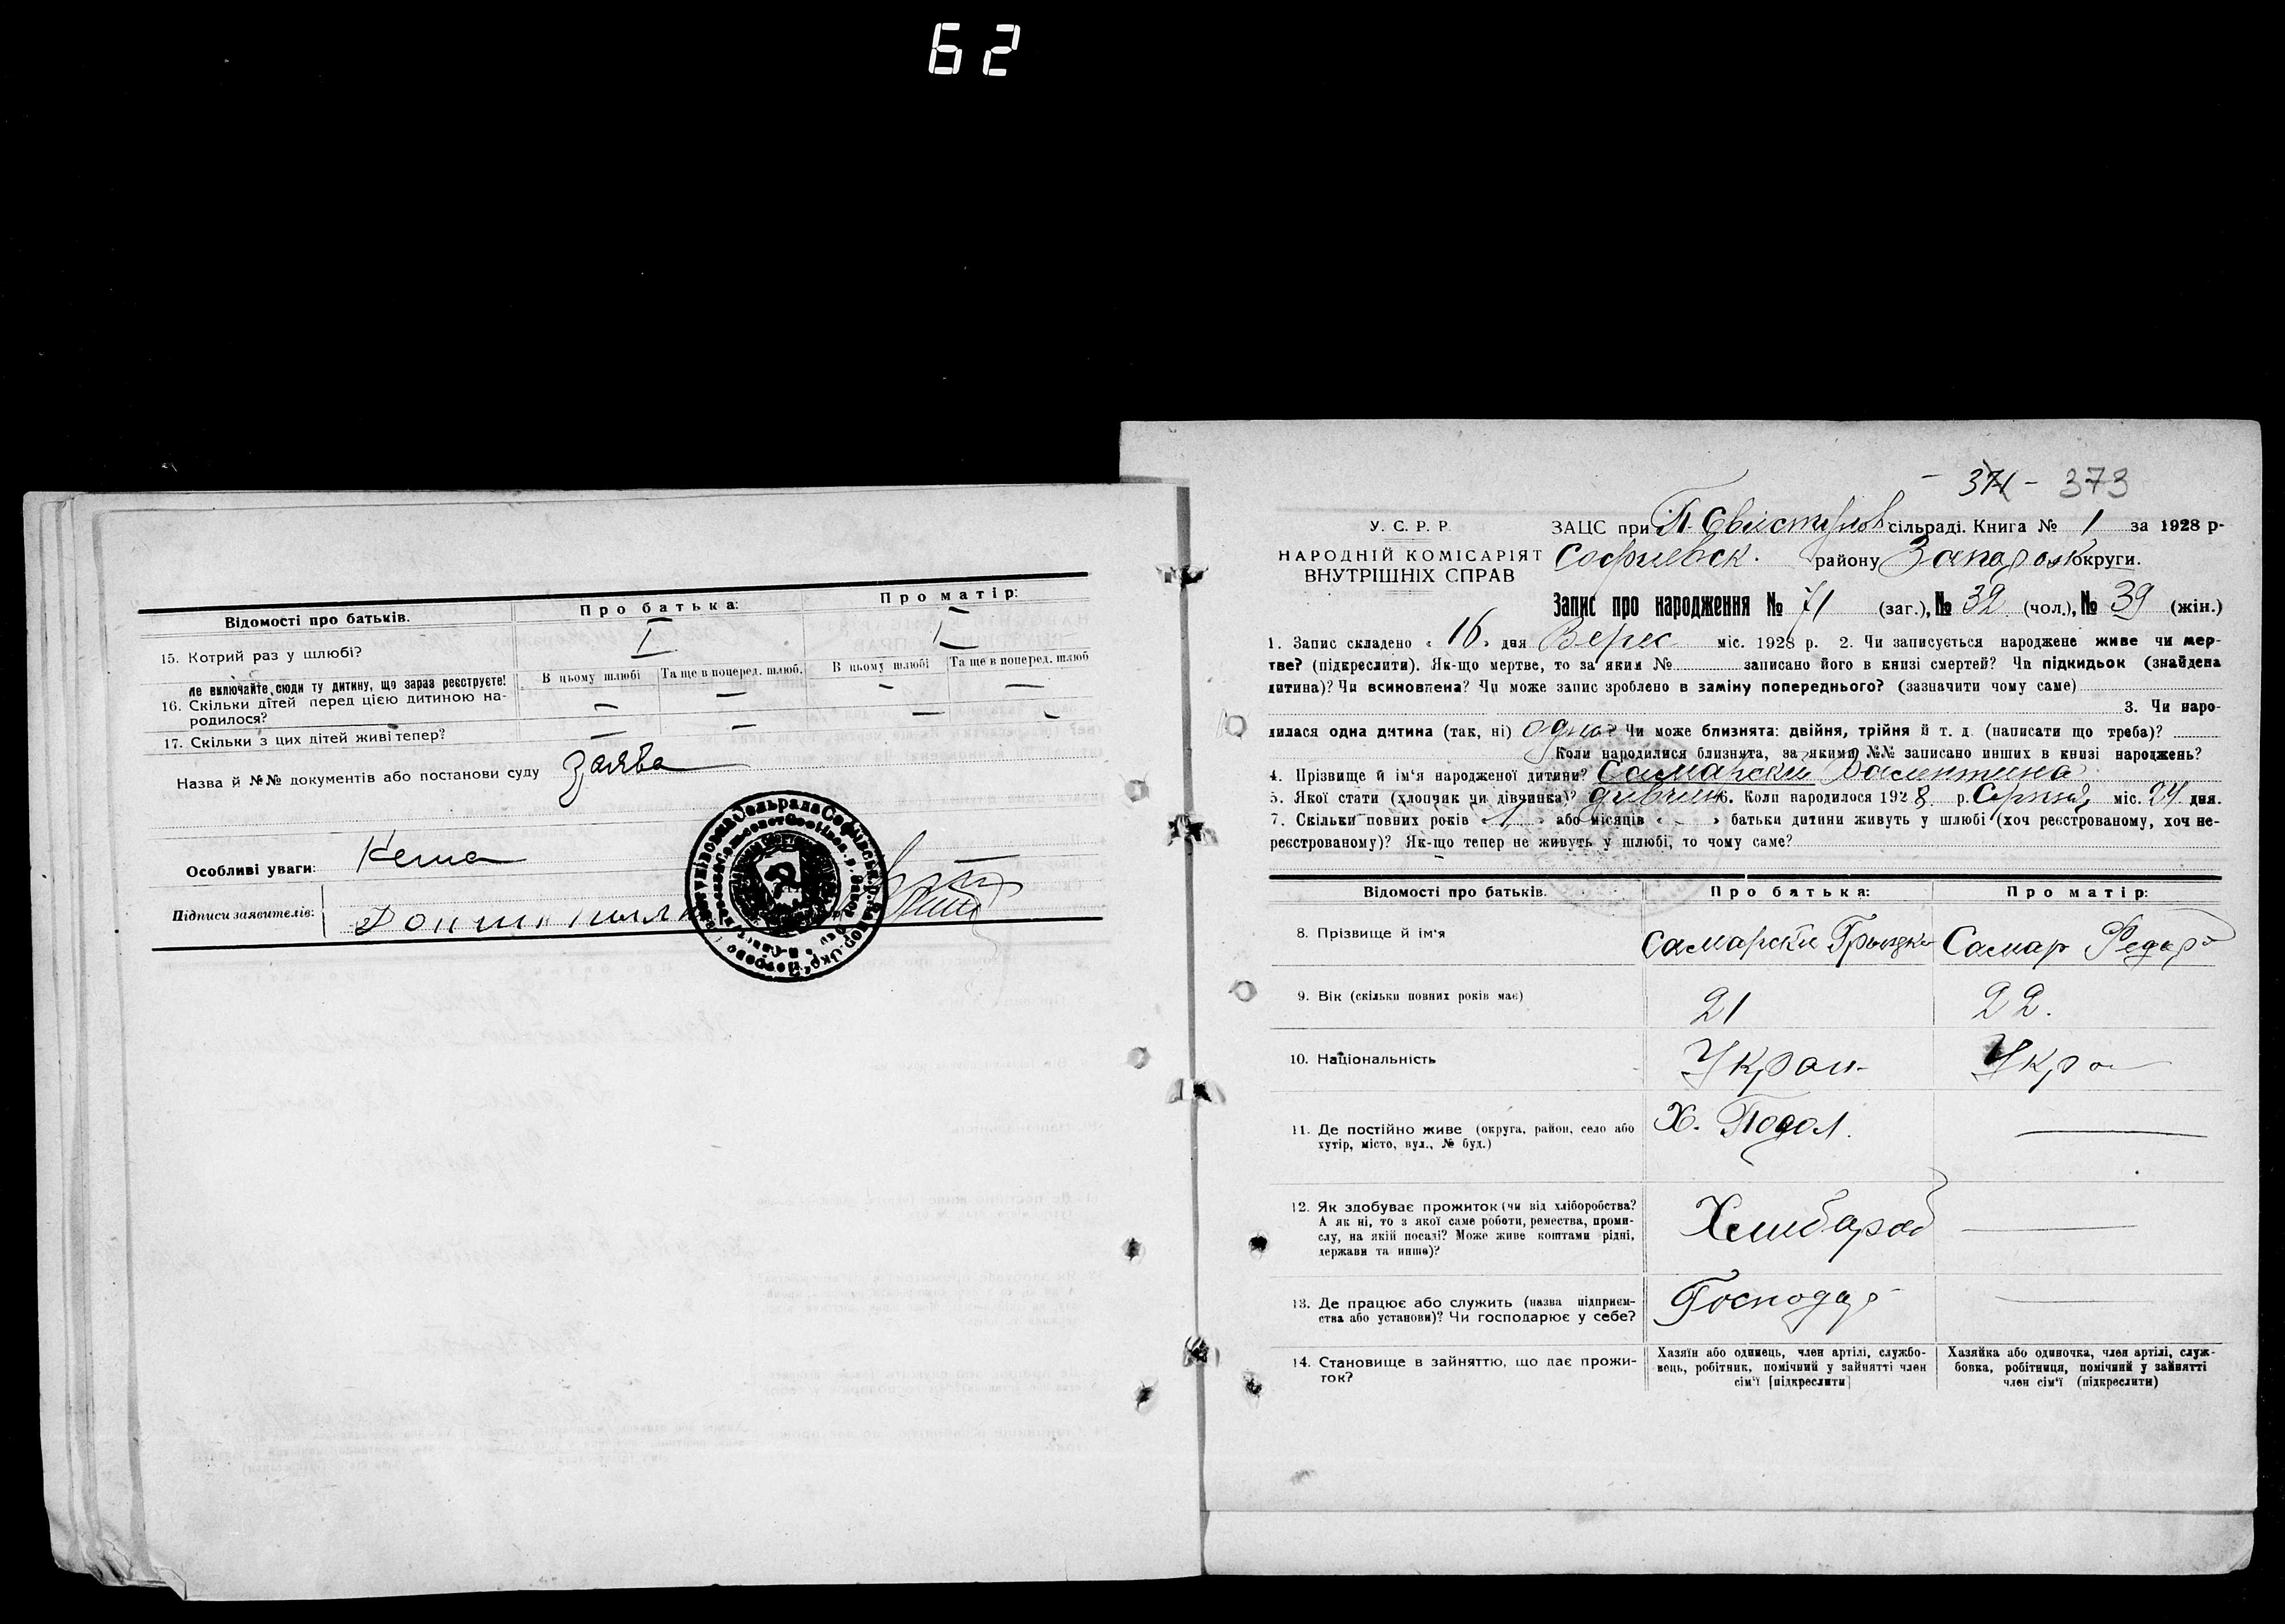 62
Відомості про батьків. Про батька: Про матір:
15. Котрий раз у шлюбі? I I
не включайте сюди ту дитину, що зараз реєструєте! В цьому шлюбі Та ще в поперед. шлюб. В цьому шлюбі Та ще в поперед. шлюб
16. Скільки дітей перед цією дитиною на- — — — —
родилося?
17. Скільки з цих дітей живі тепер? — — — —
Назва й №№ документів або постанови суду заява
Особливі уваги: Нема
Підписи заявителів:
- 371 - 373
У. С. Р. Р.
НАРОДНІЙ КОМІСАРІЯТ
ВНУТРІШНІХ СПРАВ
ЗАЦС при П. Свистунов сільраді. Книга № 1 за 1928 р-
Софиевск. району Запорож округи.
Запис про народження № 71 (заг.), № 32 (чол.), № 39 (жін.)
1. Запис складено « 16 » дня Верес міс. 1928 р. 2. Чи записується народжене живе чи мер-
тве? (підкреслити). Як-що мертве, то за яким № записано його в книзі смертей? Чи підкидьок (знайдена
дитина)? Чи всиновлена? Чи може запис зроблено в заміну попереднього? (зазначити чому саме)
3. Чи наро-
дилася одна дитина (так, ні) одна Чи може близнята: двійня, трійня й т. д. (написати що треба)?
Коли народилися близнята, за якими №№ записано инших в книзі народжень?
4. Прізвище й ім'я народженої дитини? Самарский Валентина
5. Якої стати (хлопчик чи дівчинка)? дивчин 6. Коли народилося 1928 р. Серпня міс. 24 дня.
7. Скільки повних років « 1 » або місяців « - » батьки дитини живуть у шлюбі (хоч реєстрованому, хоч не-
реєстрованому)? Як-що тепер не живуть у шлюбі, то чому саме?
Відомості про батьків. Про батька: Про матір:
8. Прізвище й ім'я Самарски Грыцко Самар Федора
9. Вік (скільки повних років має) 21 22.
10. Національність Украи- Укра
11. Де постійно живе (округа, район, село або Х. Подол.
хутір, місто, вул., № буд.)
12. Як здобуває прожиток (чи від хліборобства? Хлибароб
А як ні, то з якої саме роботи, ремества, проми-
слу, на якій посаді? Може живе коштами рідні,
держави та инше)?
13. Де працює або служить (назва підприєм- Господар
ства або установи)? Чи господарює у себе?
14. Становище в зайняттю, що дає прожи-
ток?
Хазяїн або одинець, член артілі, службо-
вець, робітник, помічний у зайнятті член
сім'ї [підкреслити]
Хазяйка або одиночка, член артілі, служ-
бовка, робітниця, помічний у зайнятті
член сім'ї (підкреслити)